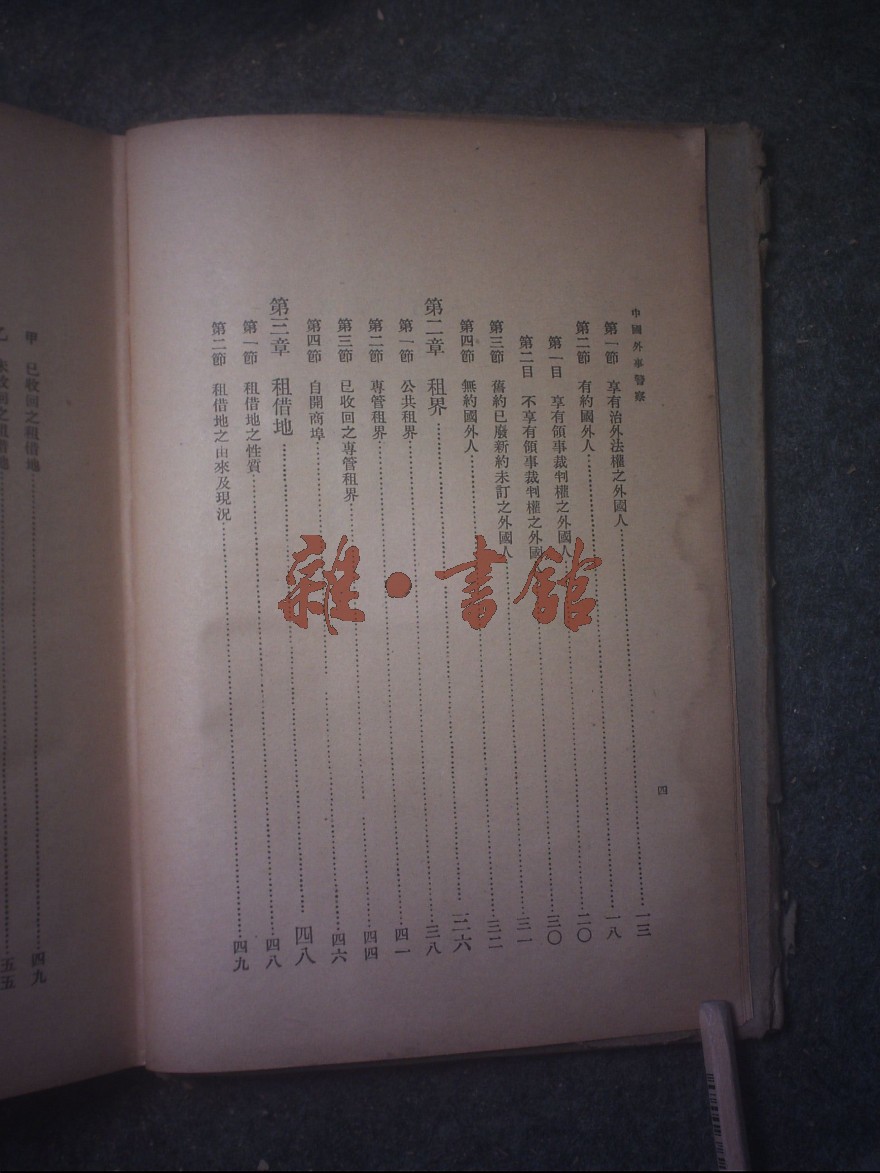 中國外事警察
四
第一節 享有治外法權之外國人……一三
第二節 有約國外人……一八
第一目 享有領事裁判權之外國人……二〇
第二目 不享有領事裁判權之外國……三〇
第三節 舊約已廢新約未訂之外國人……三一
第四節 無約國外人……三二
第二章 租界……三六
第一節 公共租界……三八
第二節 專管租界……四一
第三節 已收回之專管租界……四四
第四節 自開商埠……四六
第三章 租借地……四八
第一節 租借地之性質……四八
第二節 租借地之由來及現況……四九
甲 已收回之租借地……四九
乙 未收回之租借地……五五
雜·書館